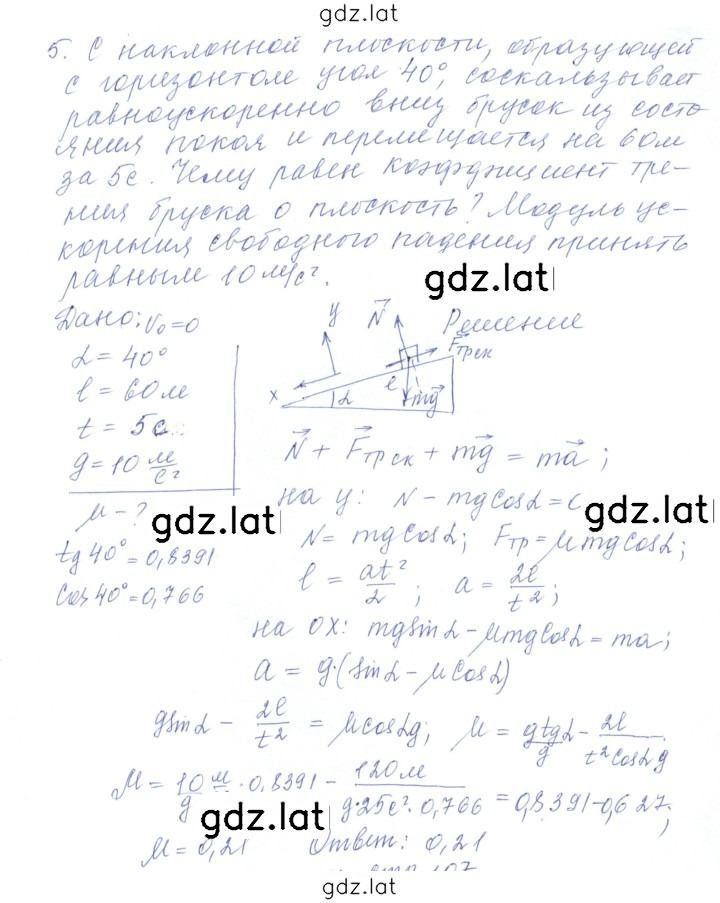 gdz.lat
5. С наклонной плоскости, образующей
с горизонтом угол 40°, соскальзывает
равноускоренно вниз брусок из состо-
яния покоя и перемещается на 60м
за 5с. Чему равен коэффициент тре-
ния бруска о плоскость? Модуль ус-
корения свободного падения принять
равным 10 м/с².
gdz.lat
Дано: v₀=0
α = 40°
l = 60м
t = 5с
g = 10 м/с²
μ - ?
tg 40° = 0,8391
Cos 40° = 0,766
y N⃗ Решение
Fтрск
x α l mg⃗
N⃗ + F⃗трск + mg⃗ = ma⃗;
на y: N - mgCosα =
gdz.lat
gdz.lat
N = mgCosα; Fтр = μmgCosα;
l = at²/2; a = 2l/t²;
на OX: mgsinα - μmgCosα = ma;
a = g·(sinα - μCosα)
gsinα - 2l/t² = μcosαg; μ = gtgα/g - 2l/t²cosαg
μ = 10 м/g · 0,8391 - 120м/g·25с²·0,766 = 0,8391-0,627;
gdz.lat
gdz.lat
μ = 0,21 Ответ: 0,21
gdz.lat